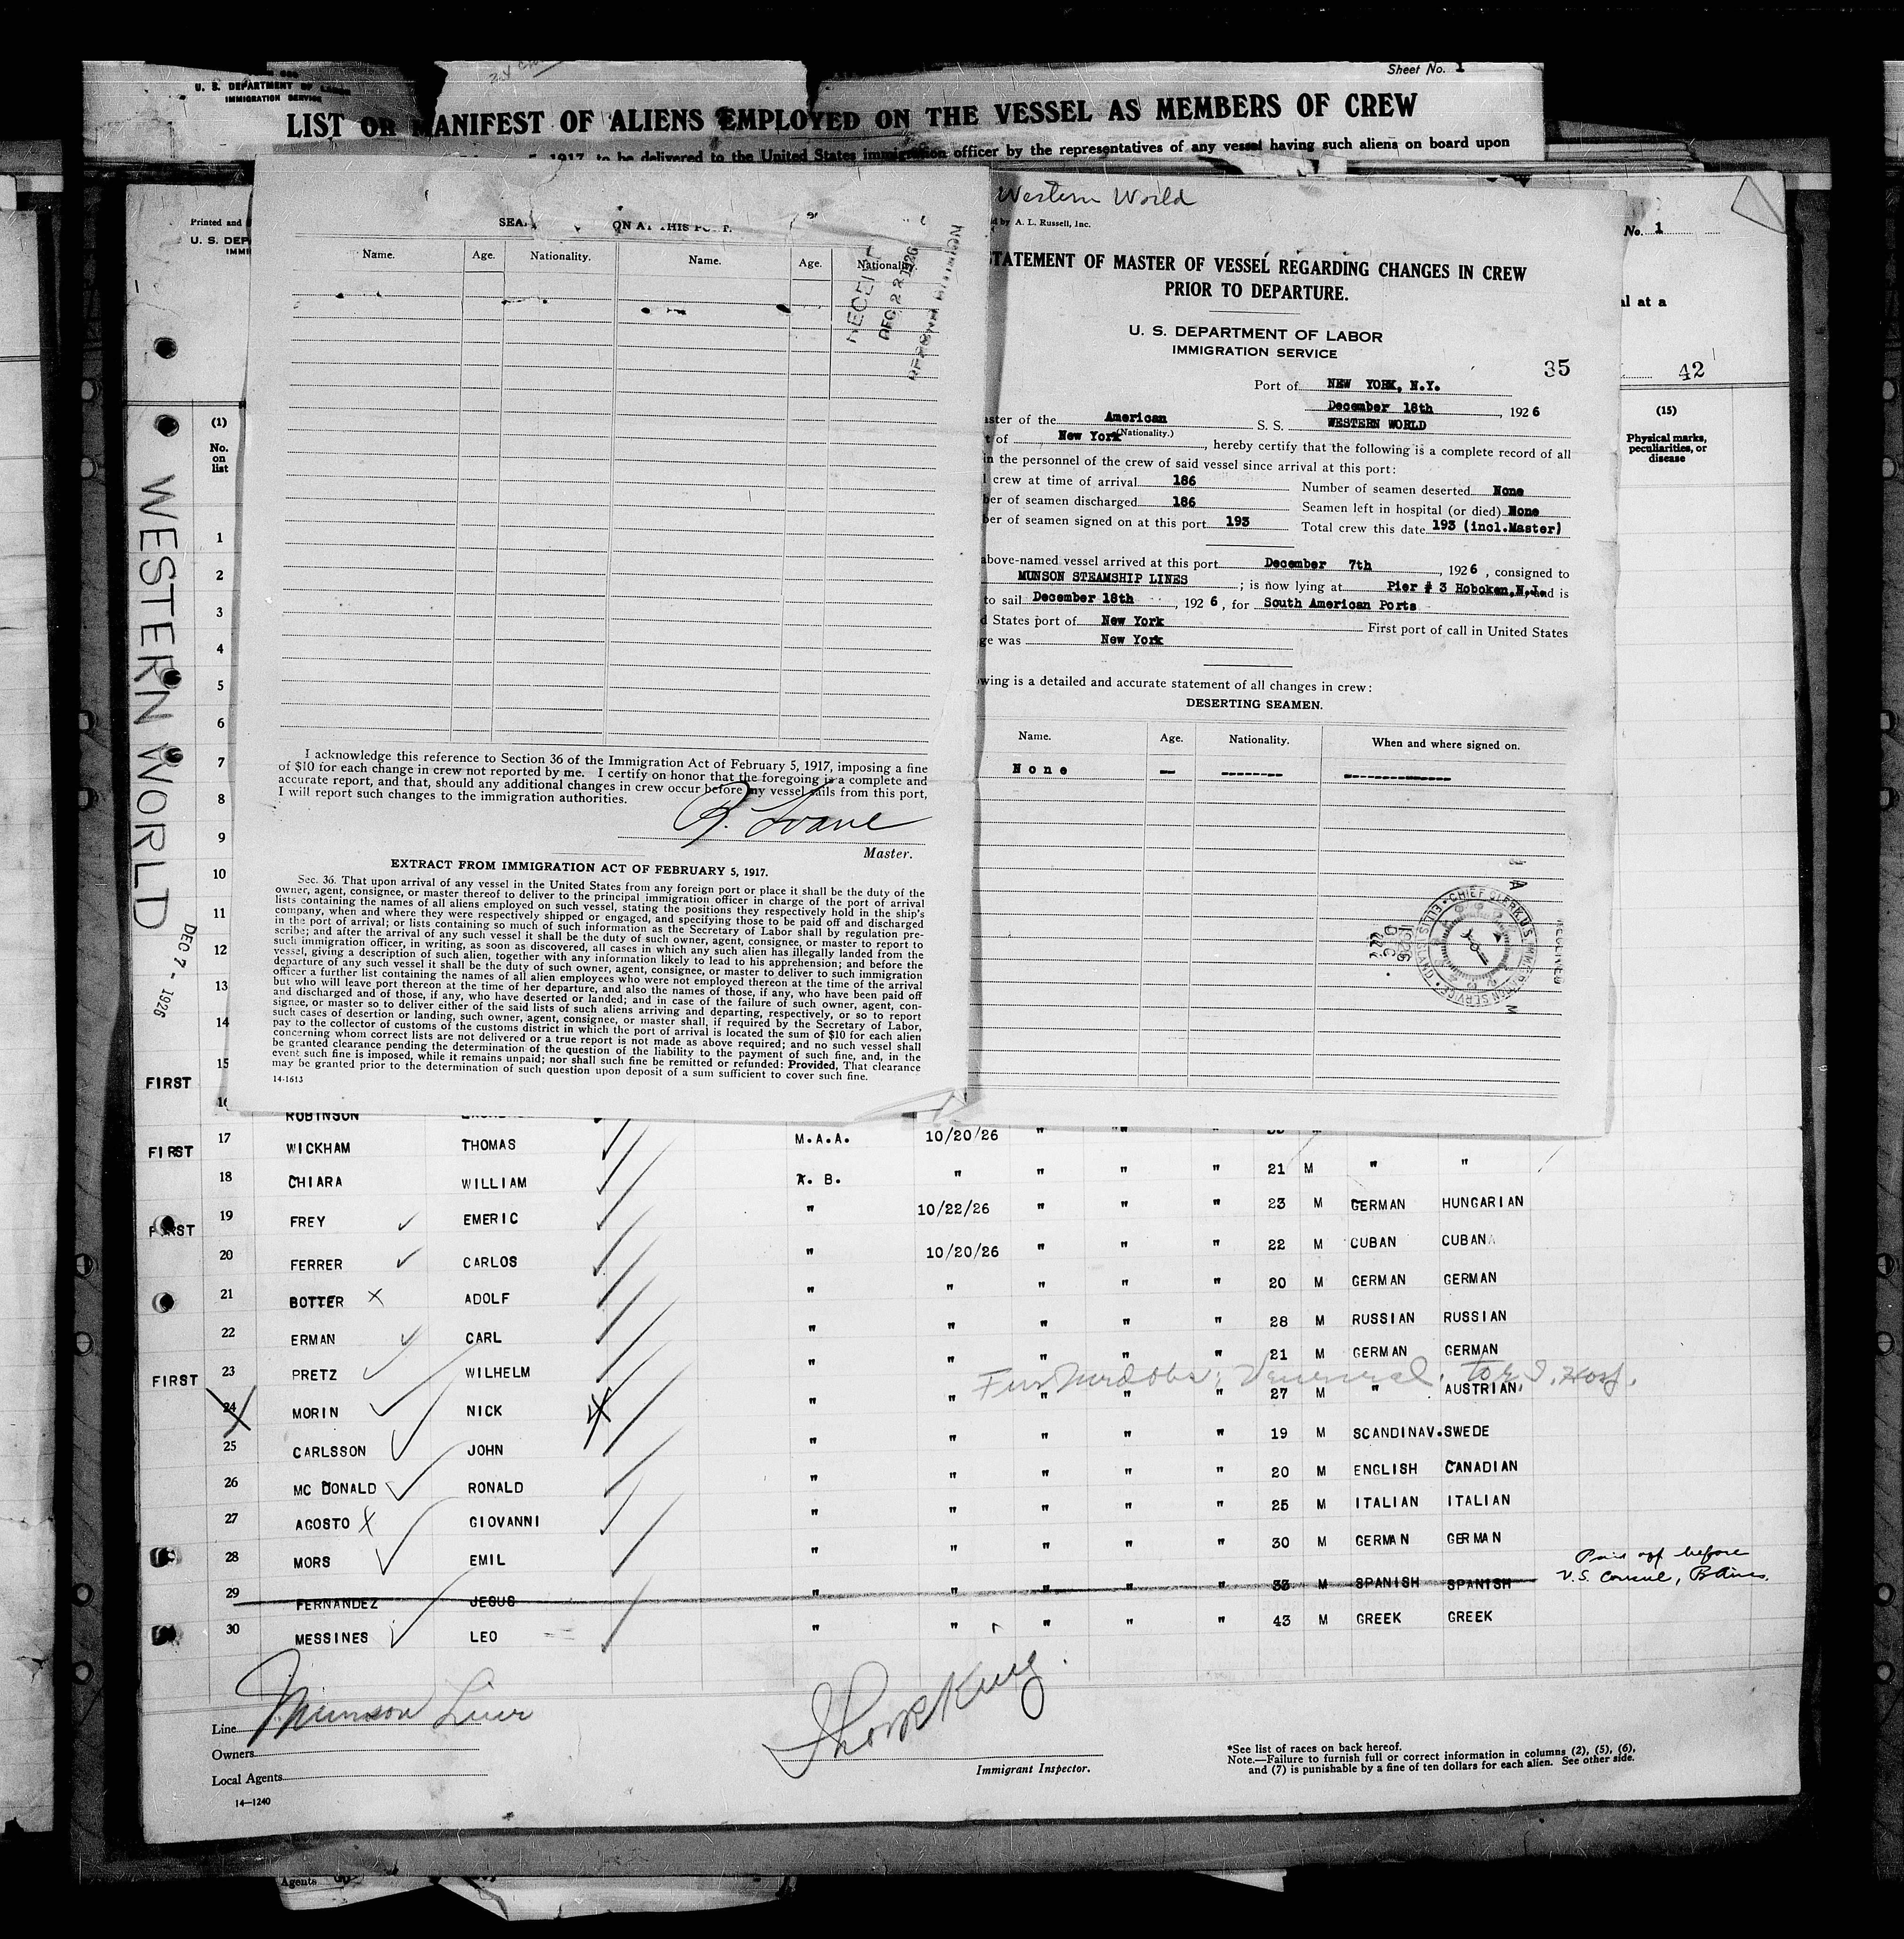 Sheet No. 1
U. S. DEPARTMENT OF LABOR
IMMIGRATION SERVICE
LIST OR MANIFEST OF ALIENS EMPLOYED ON THE VESSEL AS MEMBERS OF CREW
5, 1917, to be delivered to the United States immigration officer by the representatives of any vessel having such aliens on board upon
Printed and
U. S. DEP
IMMI
No. 1
al at a
42
(1)
No. on list
(15)
Physical marks, peculiarities, or disease
WESTERN WORLD
DEC 7 - 1926
ON AT THIS PORT.
Name. Age. Nationality. Name. Age. Nationality
DEC 22 1926
I acknowledge this reference to Section 36 of the Immigration Act of February 5, 1917, imposing a fine
of $10 for each change in crew not reported by me. I certify on honor that the foregoing is a complete and
accurate report, and that, should any additional changes in crew occur before my vessel sails from this port,
I will report such changes to the immigration authorities.
Master.
EXTRACT FROM IMMIGRATION ACT OF FEBRUARY 5, 1917.
Sec. 36. That upon arrival of any vessel in the United States from any foreign port or place it shall be the duty of the
owner, agent, consignee, or master thereof to deliver to the principal immigration officer in charge of the port of arrival
lists containing the names of all aliens employed on such vessel, stating the positions they respectively hold in the ship's
company, when and where they were respectively shipped or engaged, and specifying those to be paid off and discharged
in the port of arrival; or lists containing so much of such information as the Secretary of Labor shall by regulation pre-
scribe; and after the arrival of any such vessel it shall be the duty of such owner, agent, consignee, or master to report to
such immigration officer, in writing, as soon as discovered, all cases in which any such alien has illegally landed from the
vessel, giving a description of such alien, together with any information likely to lead to his apprehension; and before the
departure of any such vessel it shall be the duty of such owner, agent, consignee, or master to deliver to such immigration
officer a further list containing the names of all alien employees who were not employed thereon at the time of the arrival
but who will leave port thereon at the time of her departure, and also the names of those, if any, who have been paid off
and discharged and of those, if any, who have deserted or landed; and in case of the failure of such owner, agent, con-
signee, or master so to deliver either of the said lists of such aliens arriving and departing, respectively, or so to report
such cases of desertion or landing, such owner, agent, consignee, or master shall, if required by the Secretary of Labor,
pay to the collector of customs of the customs district in which the port of arrival is located the sum of $10 for each alien
concerning whom correct lists are not delivered or a true report is not made as above required; and no such vessel shall
be granted clearance pending the determination of the question of the liability to the payment of such fine, and, in the
event such fine is imposed, while it remains unpaid; nor shall such fine be remitted or refunded: Provided, That clearance
may be granted prior to the determination of such question upon deposit of a sum sufficient to cover such fine.
14-1613
Western World
by A. L. Russell, Inc.
STATEMENT OF MASTER OF VESSEL REGARDING CHANGES IN CREW
PRIOR TO DEPARTURE.
U. S. DEPARTMENT OF LABOR
IMMIGRATION SERVICE
35
Port of NEW YORK, N.Y.
December 18th, 1926
aster of the American S. S. WESTERN WORLD
(Nationality.)
t of New York, hereby certify that the following is a complete record of all
in the personnel of the crew of said vessel since arrival at this port:
l crew at time of arrival 186 Number of seamen deserted None
ber of seamen discharged 186 Seamen left in hospital (or died) None
ber of seamen signed on at this port 193 Total crew this date 193 (incl.Master)
above-named vessel arrived at this port December 7th, 1926, consigned to
MUNSON STEAMSHIP LINES; is now lying at Pier # 3 Hoboken, N.J. and is
to sail December 18th, 1926, for South American Ports
d States port of New York First port of call in United States
ge was New York
wing is a detailed and accurate statement of all changes in crew:
DESERTING SEAMEN.
Name. Age. Nationality. When and where signed on.
None — -------- --------------
CHIEF CLERK U.S. IMMIGRATION SERVICE ELLIS ISLAND
RECEIVED
1926
1
2
3
4
5
6
7
8
9
10
11
12
13
14
FIRST 15
16 ROBINSON
FIRST 17 WICKHAM THOMAS M.A.A. 10/20/26 " "
18 CHIARA WILLIAM A. B. " " " " 21 M " "
FIRST 19 FREY EMERIC " 10/22/26 " " " 23 M GERMAN HUNGARIAN
20 FERRER CARLOS " 10/20/26 " " " 22 M CUBAN CUBAN
21 BOTTER X ADOLF " " " " " 20 M GERMAN GERMAN
22 ERMAN CARL " " " " " 28 M RUSSIAN RUSSIAN
FIRST 23 PRETZ WILHELM " " " " " 21 M GERMAN GERMAN
24 MORIN NICK " 27 M " AUSTRIAN
25 CARLSSON JOHN " " " " " 19 M SCANDINAV. SWEDE
26 MC DONALD RONALD " " " " " 20 M ENGLISH CANADIAN
27 AGOSTO X GIOVANNI " " " " " 25 M ITALIAN ITALIAN
28 MORS EMIL " " " " " 30 M GERMAN GERMAN
29 FERNANDEZ JESUS " " " " " 33 M SPANISH SPANISH
Paid off before
U.S. Consul, B Aires.
30 MESSINES LEO " " " " " 43 M GREEK GREEK
Line Munson Line
Owners
Local Agents
14—1240
Immigrant Inspector.
*See list of races on back hereof.
Note.—Failure to furnish full or correct information in columns (2), (5), (6),
and (7) is punishable by a fine of ten dollars for each alien. See other side.
Agents